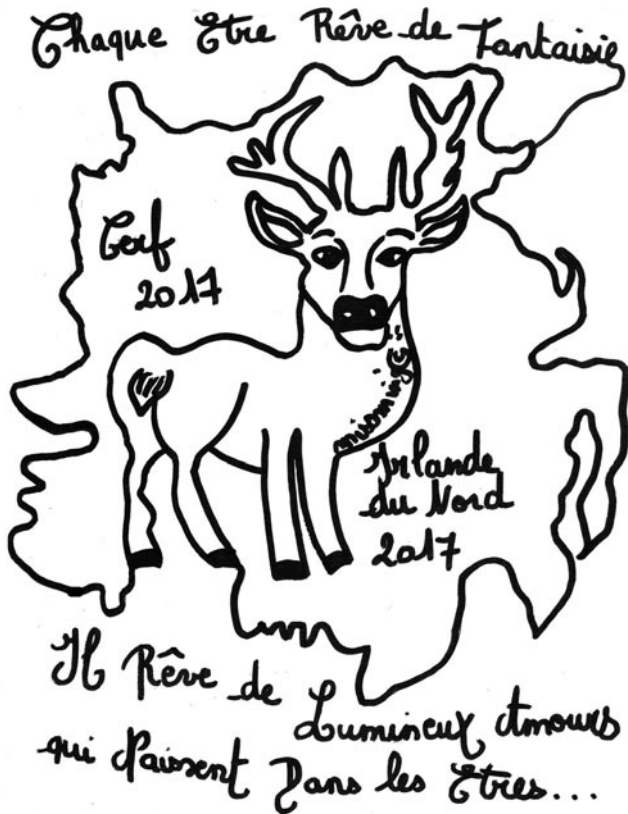 Chaque Etre Rêve de Fantaisie
Cerf
2017
Irlande
du Nord
2017
Il Rêve de Lumineux Amours
qui Naissent Dans les Etres...